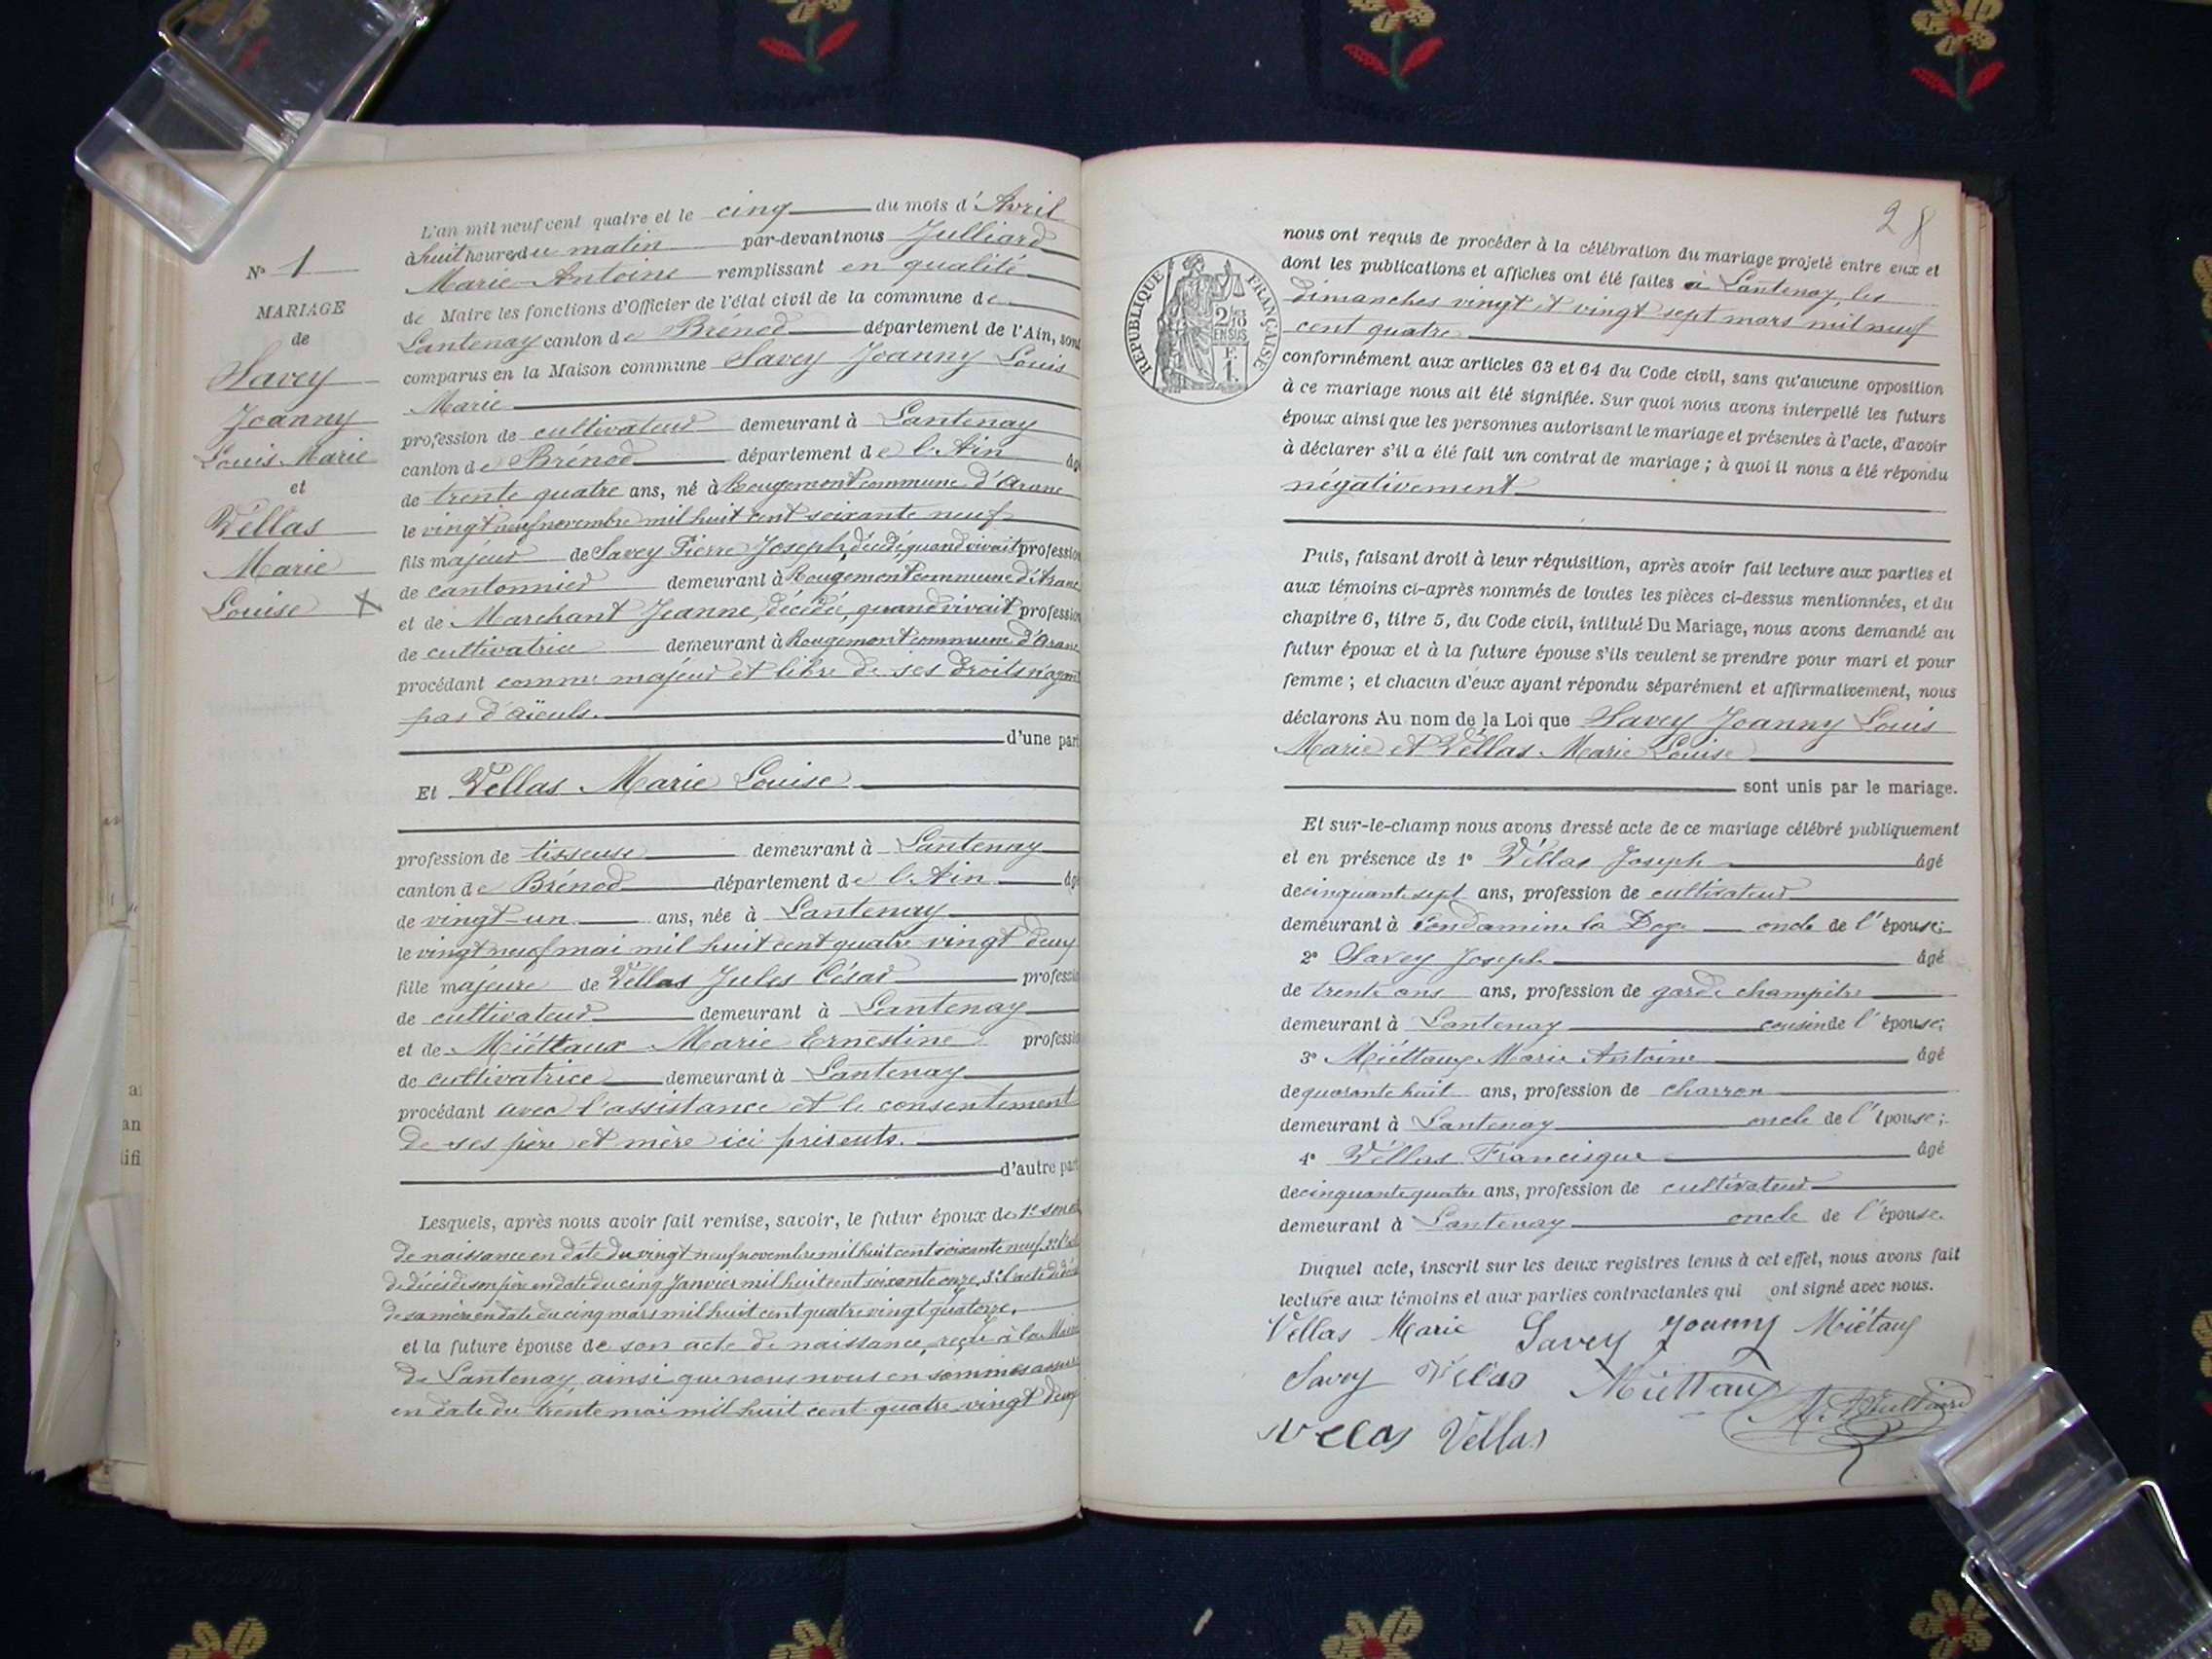 N° 1
MARIAGE
de
Savey
Joanny
Louis Marie
et
Vellas
Marie
Louise X
L'an mil neuf cent quatre et le cinq du mois d'Avril
à huit heures du matin par-devant nous Julliard
Marie-Antoine remplissant en qualité
de Maire les fonctions d'Officier de l'état civil de la commune de
Lantenay canton de Brénod département de l'Ain, sont
comparus en la Maison commune Savey Joanny Louis
Marie
profession de cultivateur demeurant à Lantenay
canton de Brénod département de l'Ain âgé
de trente quatre ans, né à Rougemont commune d'Aranc
le vingt neuf novembre mil huit cent soixante neuf
fils majeur de Savey Pierre Joseph, décédé, quand vivait profession
de cantonnier demeurant à Rougemont commune d'Aranc
et de Marchant Jeanne, décédée, quand vivait profession
de cultivatrice demeurant à Rougemont commune d'Aranc
procédant comme majeur et libre de ses droits n'ayant
pas d'aïeuls.
d'une part
Et Vellas Marie Louise
profession de tisseuse demeurant à Lantenay
canton de Brénod département de l'Ain âgé
de vingt-un ans, née à Lantenay
le vingt neuf mai mil huit cent quatre vingt deux
fille majeure de Vellas Jules César profession
de cultivateur demeurant à Lantenay
et de Miéttaux Marie Ernestine profession
de cultivatrice demeurant à Lantenay
procédant avec l'assistance et le consentement
de ses père et mère ici présents.
d'autre part
Lesquels, après nous avoir fait remise, savoir, le futur époux de 1° son
de naissance en date du vingt neuf novembre mil huit cent soixante neuf, 2°
de décès de son père en date du cinq Janvier mil huit cent soixante onze, 3° l'acte de
de sa mère en date du cinq mars mil huit cent quatre vingt quatorze.
et la future épouse de son acte de naissance, reçu à la Mairie
de Lantenay, ainsi que nous nous en sommes assuré
en date du trente mai mil huit cent quatre vingt deux
28
RÉPUBLIQUE FRANÇAISE
2/10
EN SUS
F.
1.
nous ont requis de procéder à la célébration du mariage projeté entre eux et
dont les publications et affiches ont été faites à Lantenay, les
dimanches vingt et vingt sept mars mil neuf
cent quatre
conformément aux articles 63 et 64 du Code civil, sans qu'aucune opposition
à ce mariage nous ait été signifiée. Sur quoi nous avons interpellé les futurs
époux ainsi que les personnes autorisant le mariage et présentes à l'acte, d'avoir
à déclarer s'il a été fait un contrat de mariage ; à quoi il nous a été répondu
négativement
Puis, faisant droit à leur réquisition, après avoir fait lecture aux parties et
aux témoins ci-après nommés de toutes les pièces ci-dessus mentionnées, et du
chapitre 6, titre 5, du Code civil, intitulé Du Mariage, nous avons demandé au
futur époux et à la future épouse s'ils veulent se prendre pour mari et pour
femme ; et chacun d'eux ayant répondu séparément et affirmativement, nous
déclarons Au nom de la Loi que Savey Joanny Louis
Marie et Vellas Marie Louise
sont unis par le mariage.
Et sur-le-champ nous avons dressé acte de ce mariage célébré publiquement
et en présence de 1° Véllas Joseph âgé
de cinquante sept ans, profession de cultivateur
demeurant à Condamine la Doye oncle de l'épouse;
2° Savey Joseph âgé
de trente ans ans, profession de garde champêtre
demeurant à Lantenay cousin de l'épouse;
3° Miéttaux Marie Antoine âgé
de quarante huit ans, profession de charron
demeurant à Lantenay oncle de l'épouse;
4° Véllas Francisque âgé
de cinquante quatre ans, profession de cultivateur
demeurant à Lantenay oncle de l'épouse.
Duquel acte, inscrit sur les deux registres tenus à cet effet, nous avons fait
lecture aux témoins et aux parties contractantes qui ont signé avec nous.
Vellas Marie Savey Joanny Miétaux
Savey Vélas Miettaux
Velas Vellas